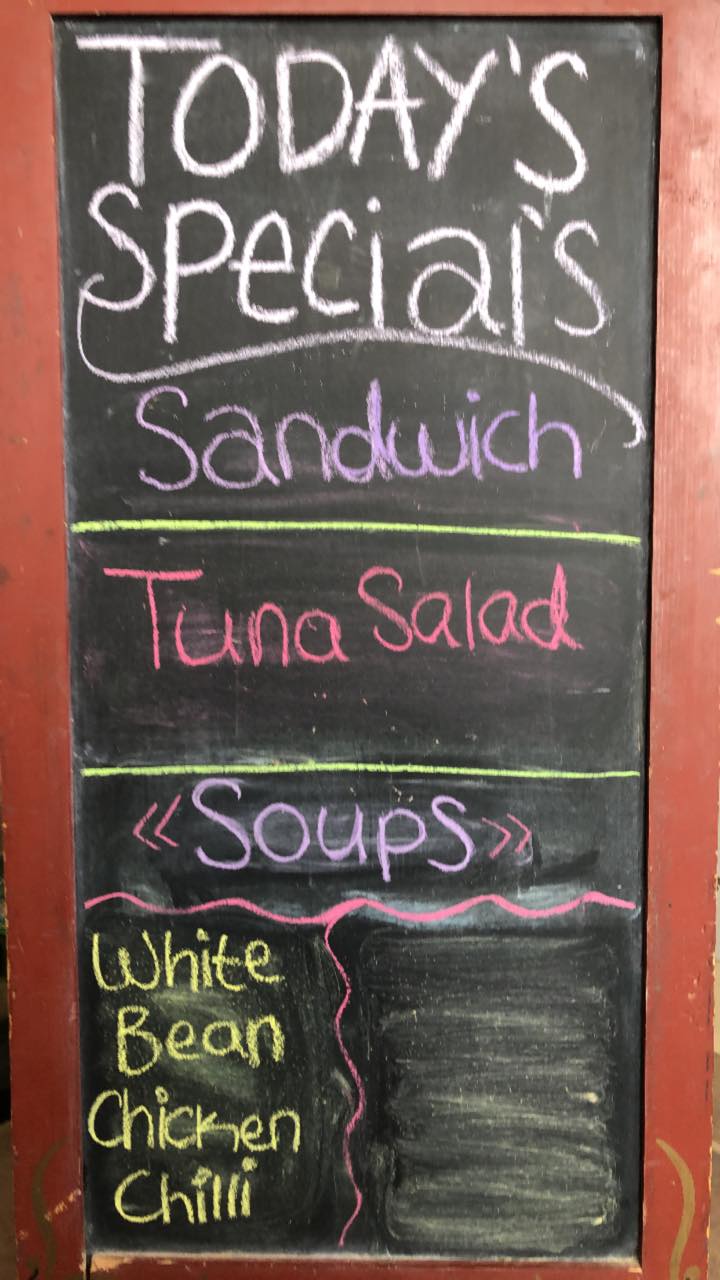 TODAY'S
Special's
Sandwich
Tuna Salad
«Soups»
White
Bean
Chicken
Chilli